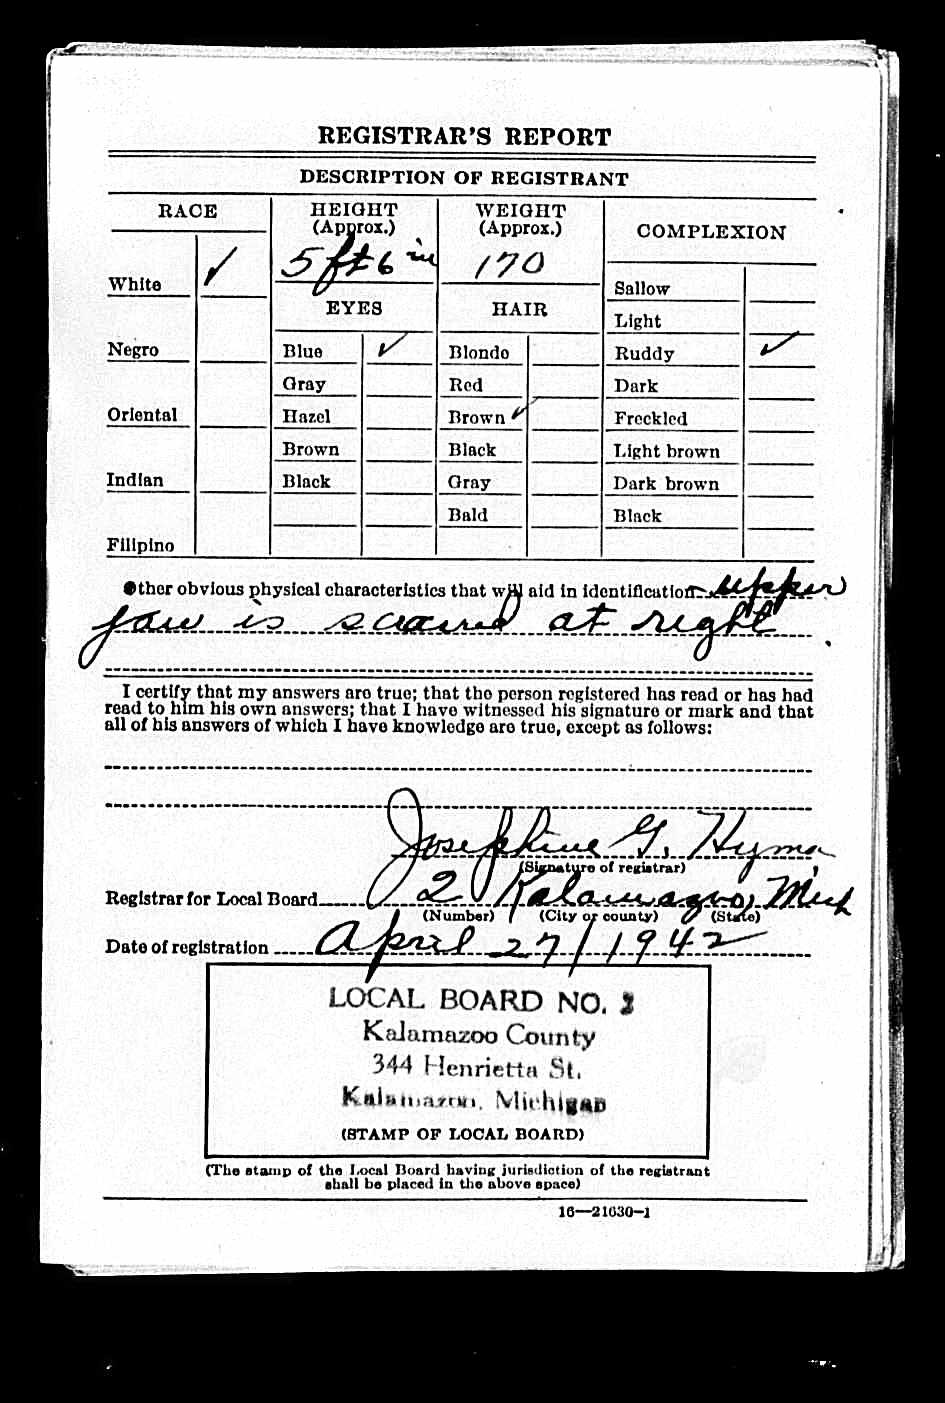 REGISTRAR'S REPORT
DESCRIPTION OF REGISTRANT
RACE
HEIGHT
(Approx.)
WEIGHT
(Approx.)
COMPLEXION
White ✓
5 ft 6 in
170
Sallow
EYES
HAIR
Light
Negro
Blue ✓
Blonde
Ruddy ✓
Gray
Red
Dark
Oriental
Hazel
Brown ✓
Freckled
Brown
Black
Light brown
Indian
Black
Gray
Dark brown
Bald
Black
Filipino
Other obvious physical characteristics that will aid in identification upper
jaw is scarred at right
I certify that my answers are true; that the person registered has read or has had
read to him his own answers; that I have witnessed his signature or mark and that
all of his answers of which I have knowledge are true, except as follows:
Josephine G. Hyma
(Signature of registrar)
Registrar for Local Board 2 Kalamazoo, Mich
(Number) (City or county) (State)
Date of registration April 27/1942
LOCAL BOARD NO.
Kalamazoo County
344 Henrietta St.
Kalamazoo, Michigan
(STAMP OF LOCAL BOARD)
(The stamp of the Local Board having jurisdiction of the registrant
shall be placed in the above space)
16—21630-1